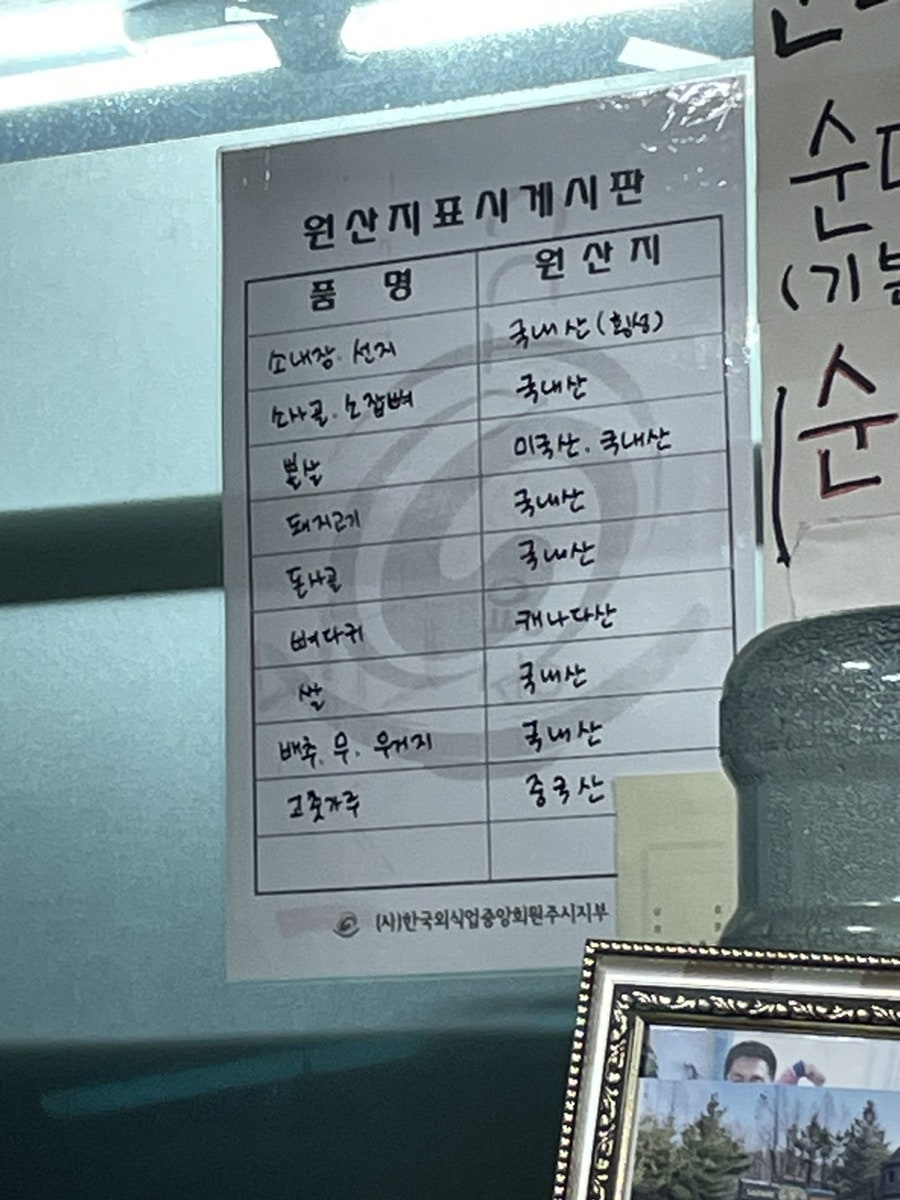 원산지표시게시판
품 명 원 산 지
소내장. 선지 국내산(횡성)
소사골. 소잡뼈 국내산
볼살 미국산. 국내산
돼지고기 국내산
돈사골 국내산
뼈다귀 캐나다산
쌀 국내산
배추. 무. 우거지 국내산
고춧가루 중국산
(사)한국외식업중앙회원주시지부
순대
(기본
순